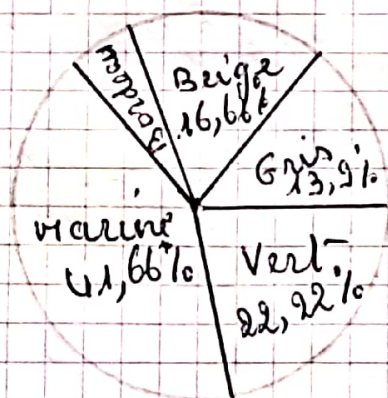 Bordeau
Beige
16,66%
Gris
13,9%
marine
41,66%
Vert
22,22%